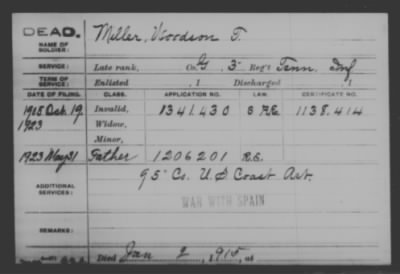 DEAD. Miller, Woodson T.
NAME OF SOLDIER:
SERVICE: Late rank, Co. G, 3 Reg't Tenn. Inf
TERM OF SERVICE: Enlisted , 1 Discharged , 1
DATE OF FILING. CLASS. APPLICATION NO. LAW. CERTIFICATE NO.
1918 Oct. 19 Invalid, 1341.430 1138.414
1923 Widow,
Minor,
1923 May 31 Father 1206201 R.E.
ADDITIONAL SERVICES: 95" Co. U.S Coast Art.
WAR WITH SPAIN
REMARKS:
Died Jan 2, 1915, at